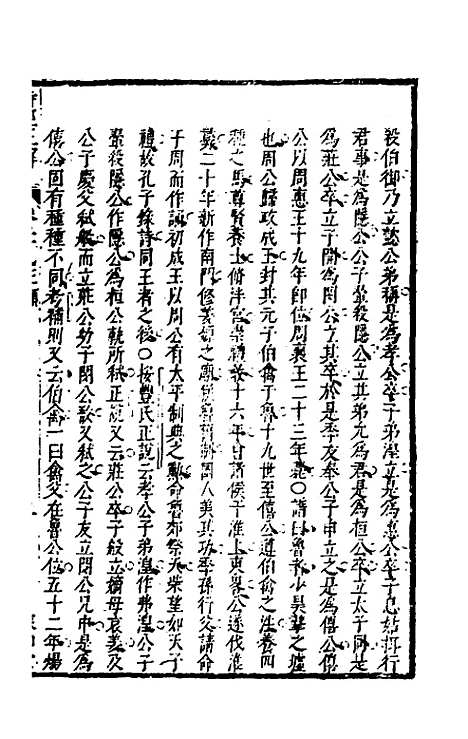 殺伯御乃立懿公弟稱是爲孝公卒子弟湟立是爲惠公卒子息姑攝行
君事是爲隱公公子翬殺隱公立其弟允爲君是爲桓公卒立太子同是
爲莊公卒立子開爲閔公立其卒於是季友奉公子申立之是爲僖公僖
公以周惠王十九年卽位周襄王二十三年薨〇譜曰魯者少昊摯之墟
也周公歸政成王封其元子伯禽于魯十九世至僖公遵伯禽之法養四
種之馬尊賢養士脩泮宮崇禮義十六年會諸侯于淮上東畧公遂伐淮
夷二十年新作南門修姜嫄之廟國人美其功季孫行父請命
于周而作頌初成王以周公有太平制典之勳命魯郊祭天柴望如天子
禮故孔子錄詩同王者之後〇按豐氏正說云孝公子弟湟作弗湟公子
翬殺隱公作隱公爲桓公軌所弒正說又云莊公卒子般立嫡母哀姜及
公子慶父弒般而立莊公幼子閔公慶父弒之公子友立閔公兄申是爲
僖公固有種種不同者稱則又云伯禽一曰禽父在魯公位五十二年煬